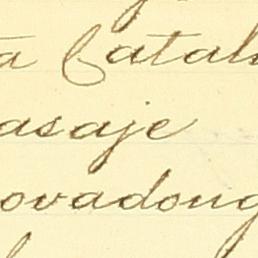 a Catal
asaje
ovadong